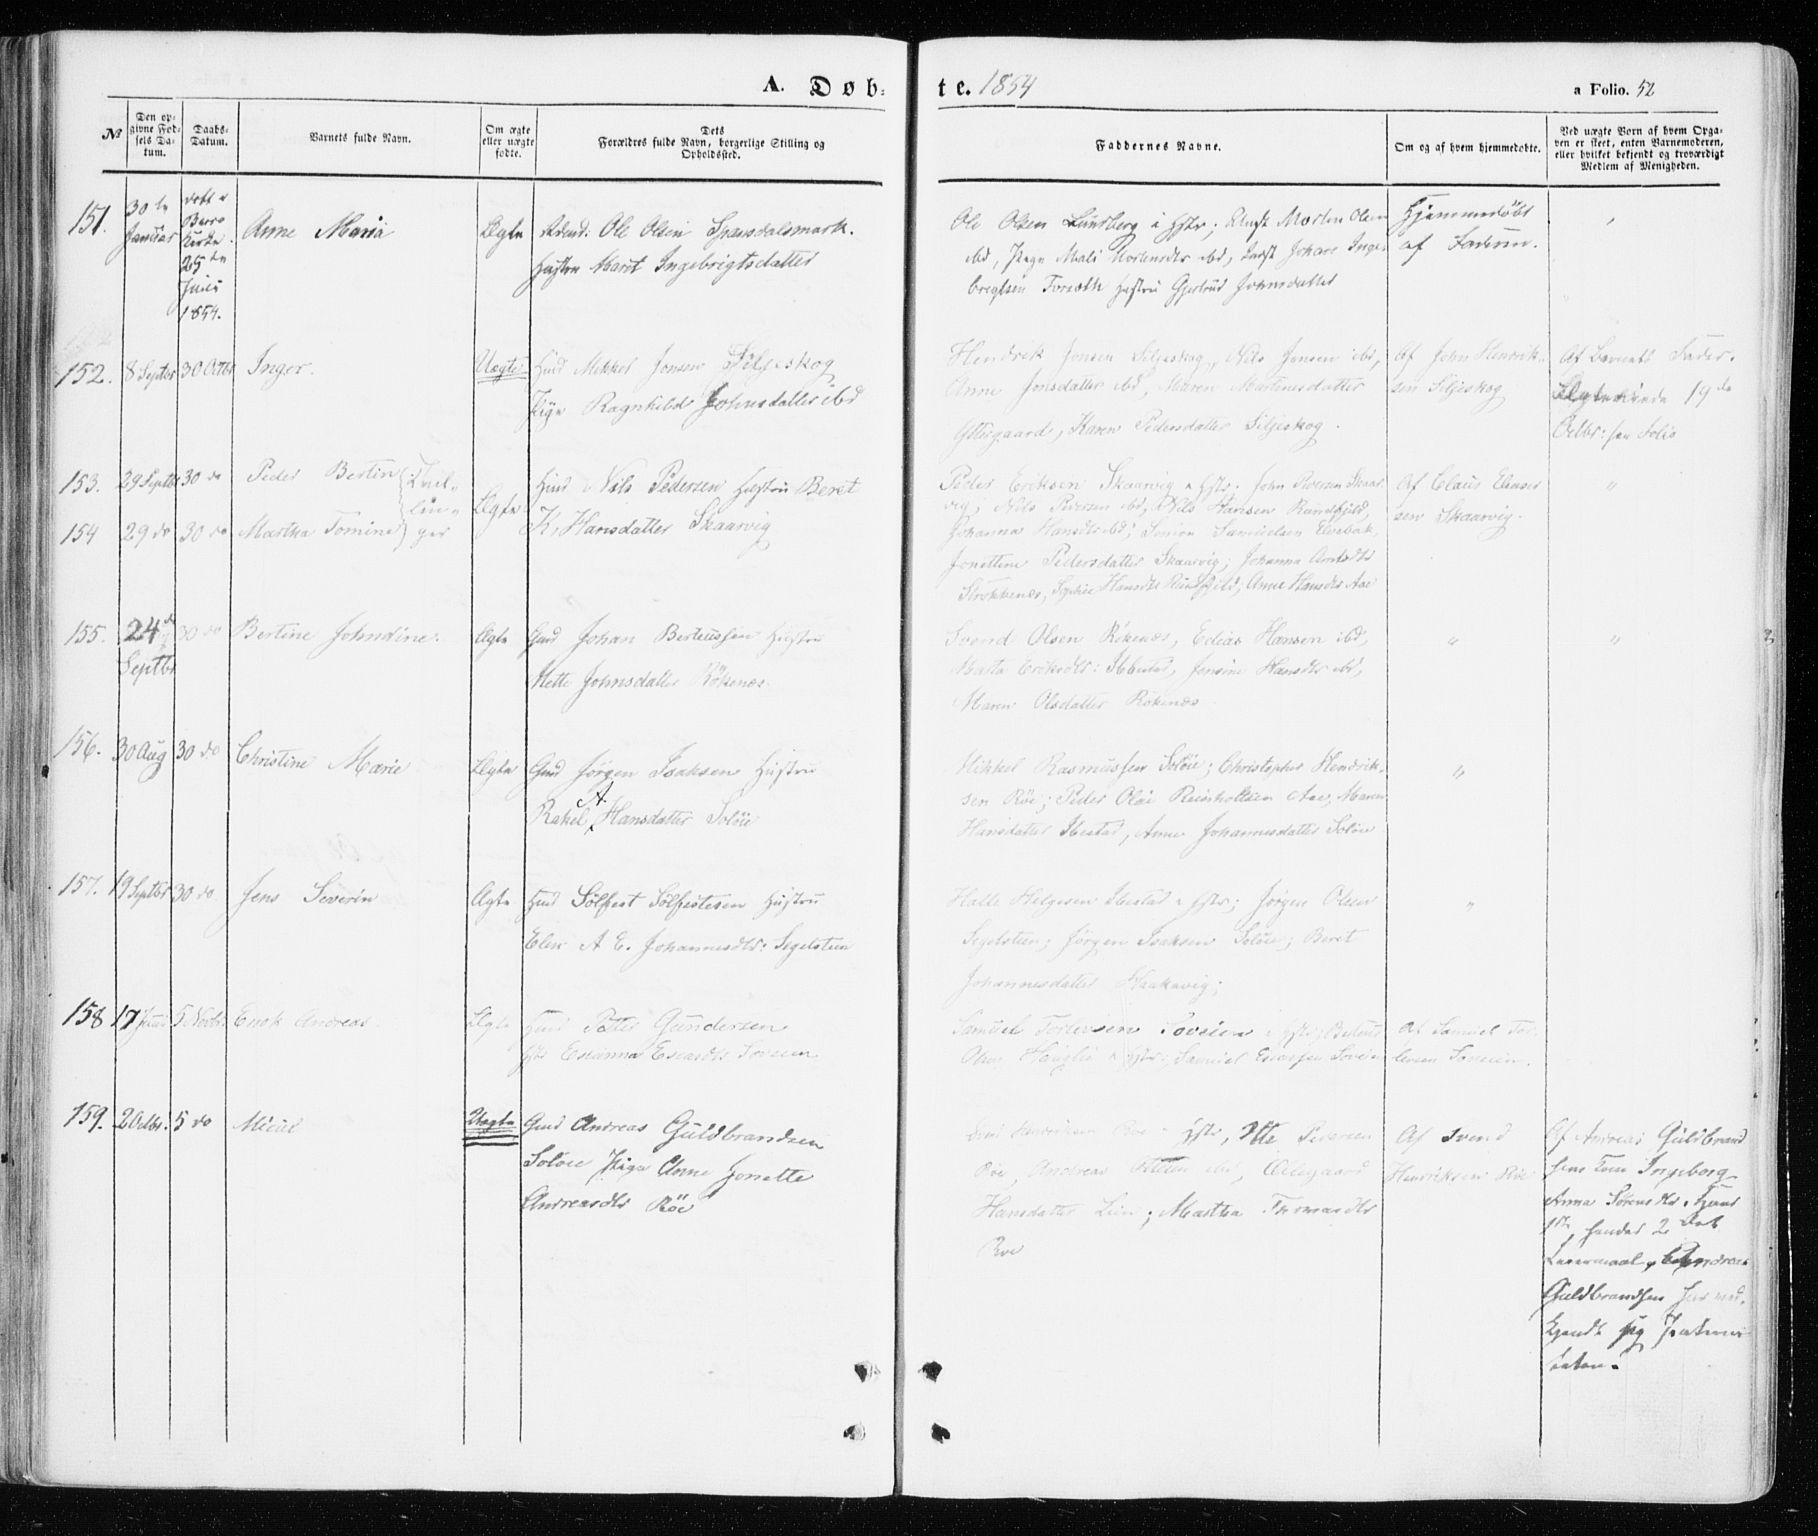 A. Døb-
te. 1854
a Folio. 52
№
Den op-
givne Fød-
sels Da-
tum.
Daabs-
Datum.
Varnets fulde Navn.
Om ægte
eller uægte
fødte.
Dets
Forældres fulde Navn, borgerlige Stilling og
Opholdssted.
Faddernes Navne.
Om og af hvem hjemmedøbte.
Ved uægte Børn af hvem Opga-
ven er skeet, enten Barnemoderen,
eller hvilket bekjendt og troværdigt
Medlem af Menigheden.
151.
30te
Januar
Kirke
25de
Juni
1854.
Anne Maria
Ægte
Ole Olsen Spansdalsmark.
Hustru Marit Ingebrigtsdatter
Ole Olsen Lundberg i Hstr; Morten Olsen
ibd, Pige Mali Mortensdtr ibd, Johan Inge-
brigtsen Forsæth Hustru Gjertrud Johnsdatter
Hjemmedøbt
af Faderen.
"
152.
8 Septbr
30 Octbr
Inger.
Uægte
Husd Mikkel Jonsen Siljeskog
Pige Ragnhild Johnsdatter ibd
Hendrik Jonsen Siljeskog, Nils Jensen ibd,
Anne Jonsdatter ibd, Maren Martinusdatter
Ystergaard, Karen Pedersdatter Siljeskog.
Af John Henrik-
sen Siljeskog
Af Barnets Fader.
19de
Octbr: Folio
153.
29 Septbr
30 do
Peder Bertin
Tvil-
lin-
ger
154
29 do
30 do
Martha Tomine
Ægte
Husd Nils Pedersen Hustru Beret
K. Hansdatter Skaarvig
Peder Eriksen Skaarvig & Hstr. John Iversen Skaar-
vig, Nils Iversen ibd, Nils Hansen
Johanna Hansdtr ibd; Simon Samuelsen Elvebak,
Jonettine Pedersdatter Skaarvig; Johanna
Sophie Hansdtr Anne Hansdtr Aae
Af Claus Elenser
sen Skaarvig.
"
155.
24de
Septbr
30 do
Bertine Johndine.
Ægte
Gmd Johan Berteussen Hustru
Mette Johnsdatter Røkenes.
Svend Olsen Røkenes, Edias Hansen ibd,
Marta Eriksdtr: Ibestad, Jensine Hansdtr ibd,
Maren Olsdatter Røkenes
"
"
156.
30 Aug
30 do
Christine Marie
Ægte
Gmd Jørgen Isaksen Hustru
Rakel A. Hansdatter Soløie
Mikkel Rasmussen Soløie; Christopher Hendrik-
sen Røe; Peder Olai Reinholtsen Aae, Maren
Hansdatter Ibestad, Anne Johannesdatter Soløie
"
157.
19 Septbr
30 do
Jens Severin
Ægte
Husd Sølfest Sølfestesen Hustru
Elen A E. Johannesdtr: Segelsteen
Halle Helgesen Ibestad & Hstr; Jørgen Olsen
Segelsteen; Jørgen Isaksen Soløie; Beret
Johannesdatter Haakavig;
"
158
17 Juni
5 Novbr.
Enok Andreas.
Ægte
Husd Petter Gundersen
Hstr Esianna Esaisdtr Soveien
Samuel Torlevsen Soveien & Hstr; Berteus
Olsen Hauglie & Hstr; Samuel Esaissen Soveien
Af Samuel Tor-
levsen Soveien.
159.
2 Octbr.
5 do
Micul
Uægte
Gmd Andreas Guldbrandsen
Soløie Pige Anne Jonette
Andreasdtr Røe
Svend Henriksen Røe & Hstr, Otte Pedersen
Røe, Andreas Ottesen ibd, Ødegaard
Hansdatter Lien; Martha Thomasdtr
Røe
Af Svend
Henriksen Røe
Af Andreas Guldbrand
sens Kone Ingeborg
Anna Sørensdtr. Hans
1ste, hendes 2det
Leiermaal, Andreas
Guldbrandsen har ved-
kjendt sig Paterni-
teten.